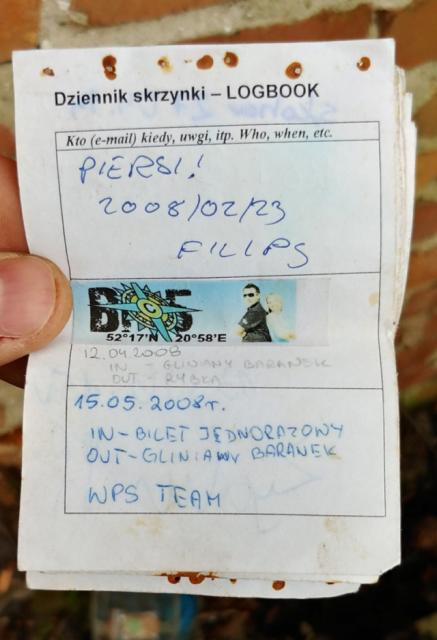 Dziennik skrzynki – LOGBOOK
Kto (e-mail) kiedy, uwgi, itp. Who, when, etc.
PIERSI!
2008/02/23
FILIPS
52°17'N 20°58'E
12.04.2008
IN - GLINIANY BARANEK
OUT - RYBKA
15.05.2008r.
IN-BILET JEDNORAZOWY
OUT-GLINIANY BARANEK
WPS TEAM